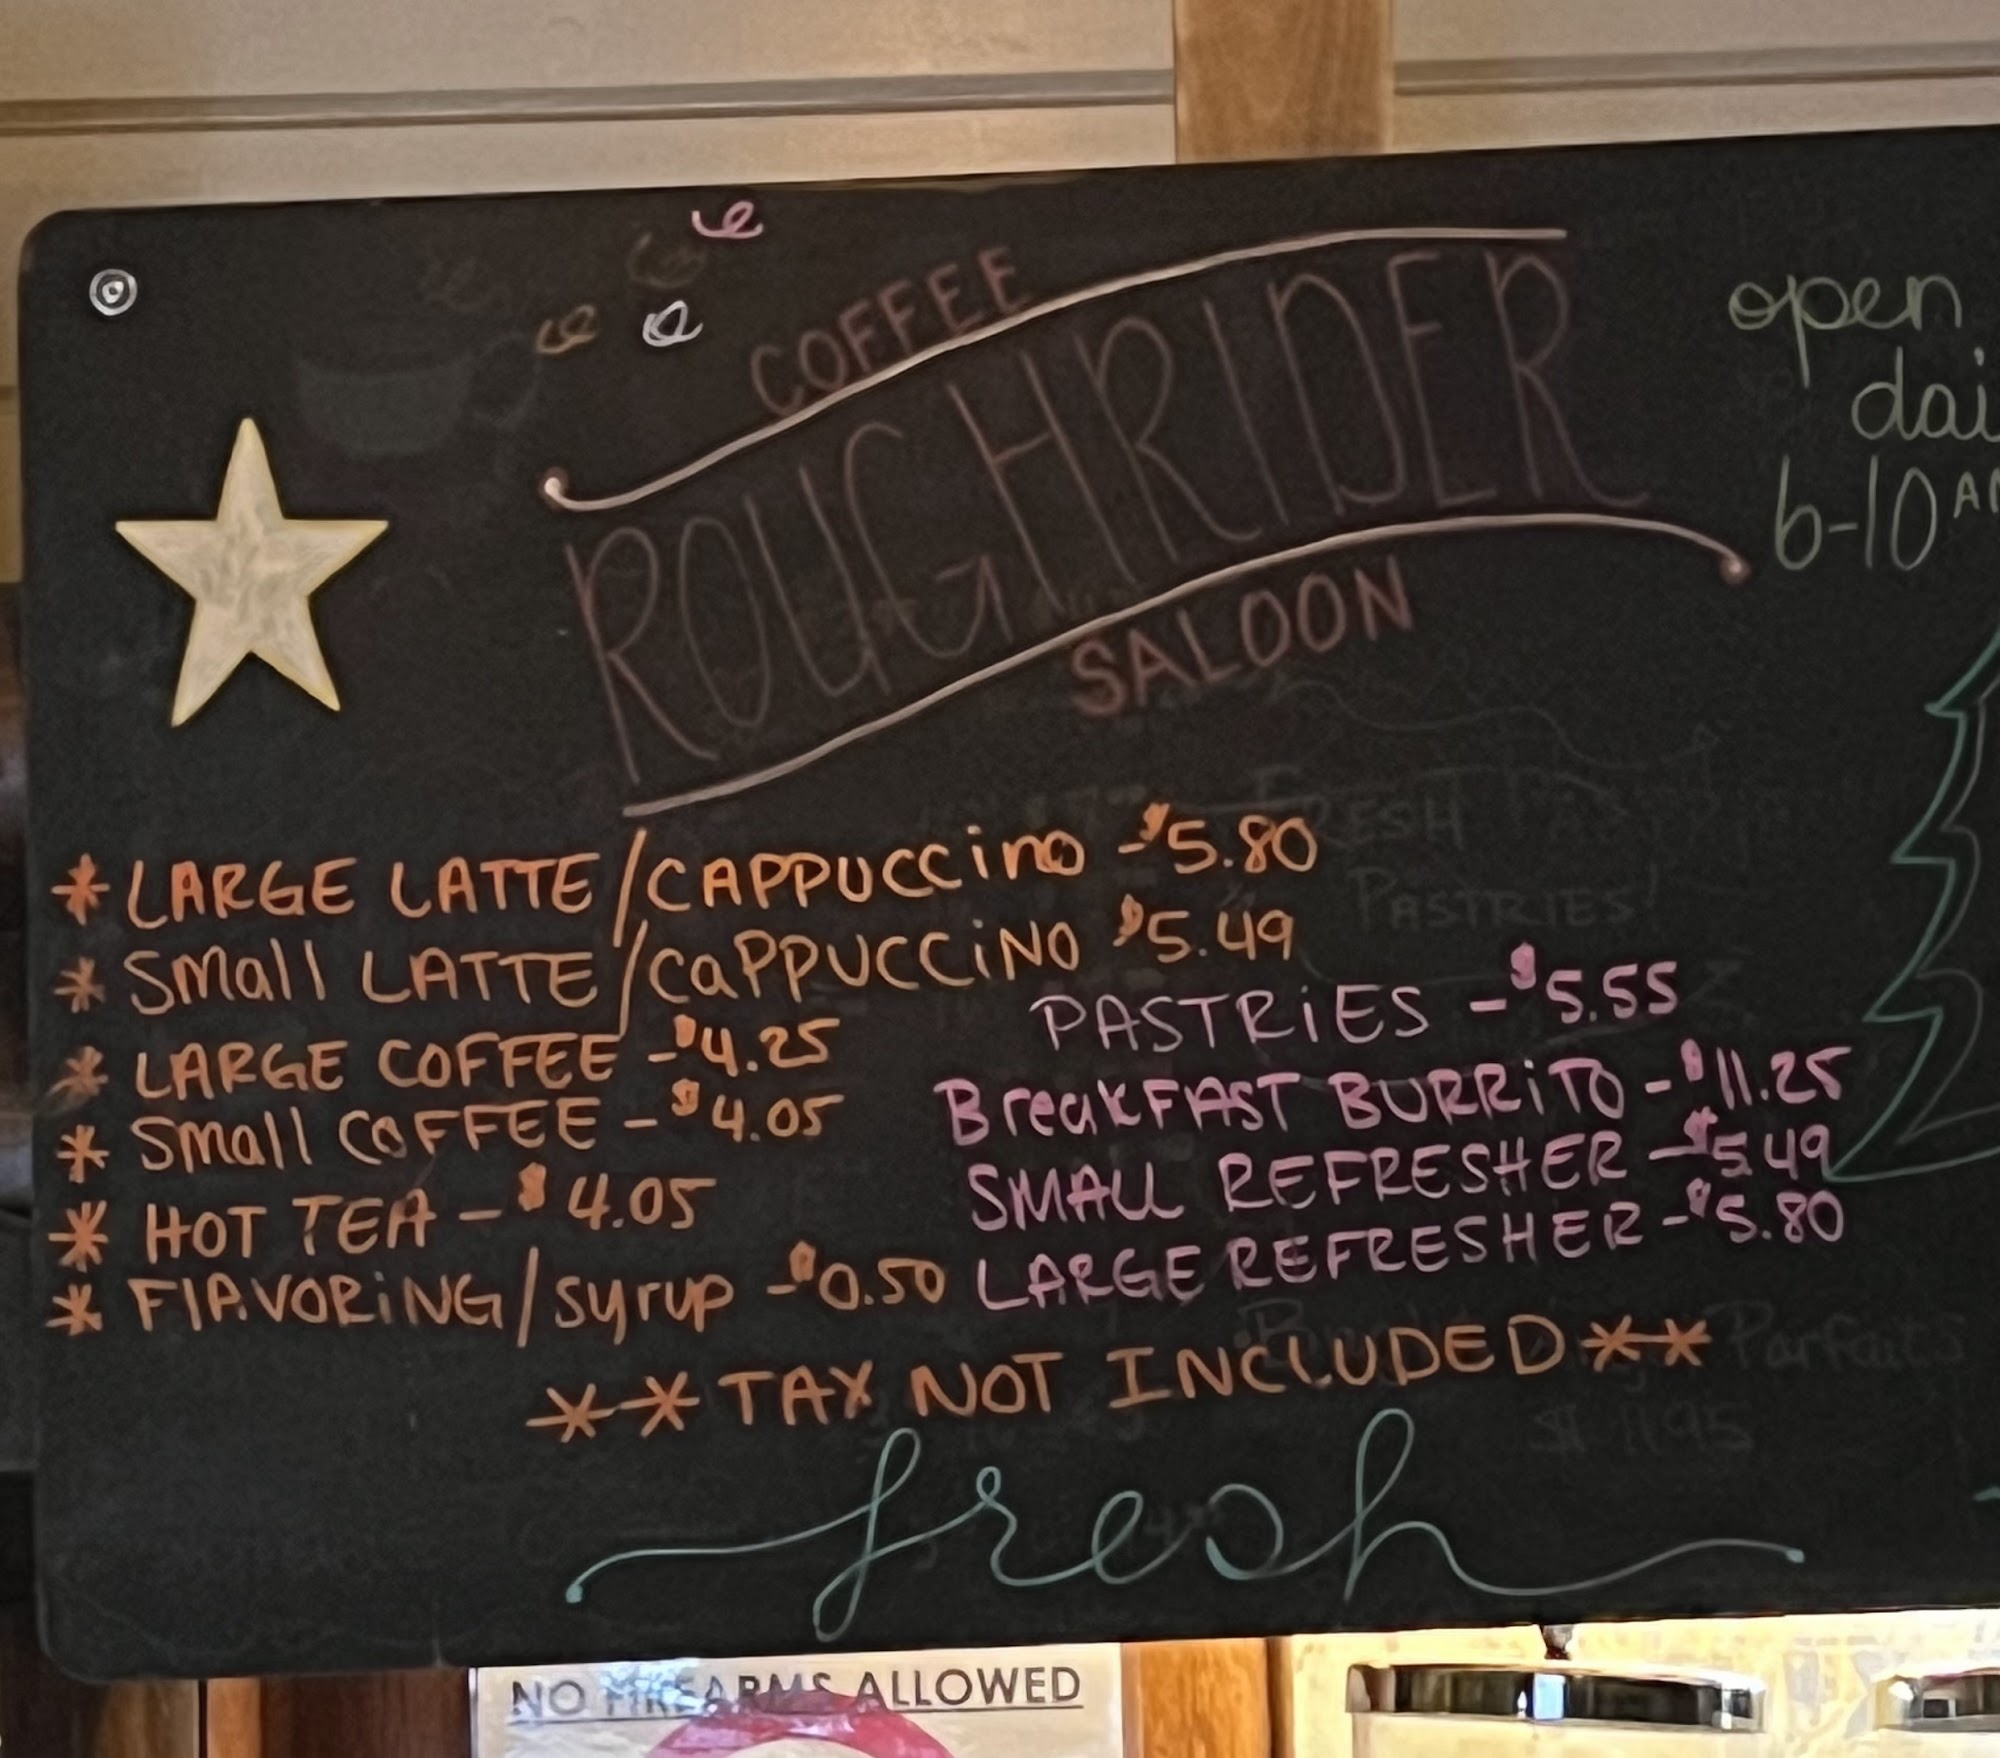 COFFEE
ROUGHRIDER
SALOON
open
dai
6-10AM
* LARGE LATTE/CAPPUCCino - $5.80
* Small LATTE/CaPPUCCiNO $5.49
* LARGE COFFEE - $4.25
* Small COFFEE - $4.05
* HOT TEA - $4.05
* FlAVORiNG/syrup - $0.50
PASTRiES - $5.55
BreakFAST BURRiTO - $11.25
SMALL REFRESHER - $5.49
LARGE REFRESHER - $5.80
**TAX NOT INCLUDED**
fresh
FRESH
PASTRIES!
Parfaits
$11.95
NO FIREARMS ALLOWED